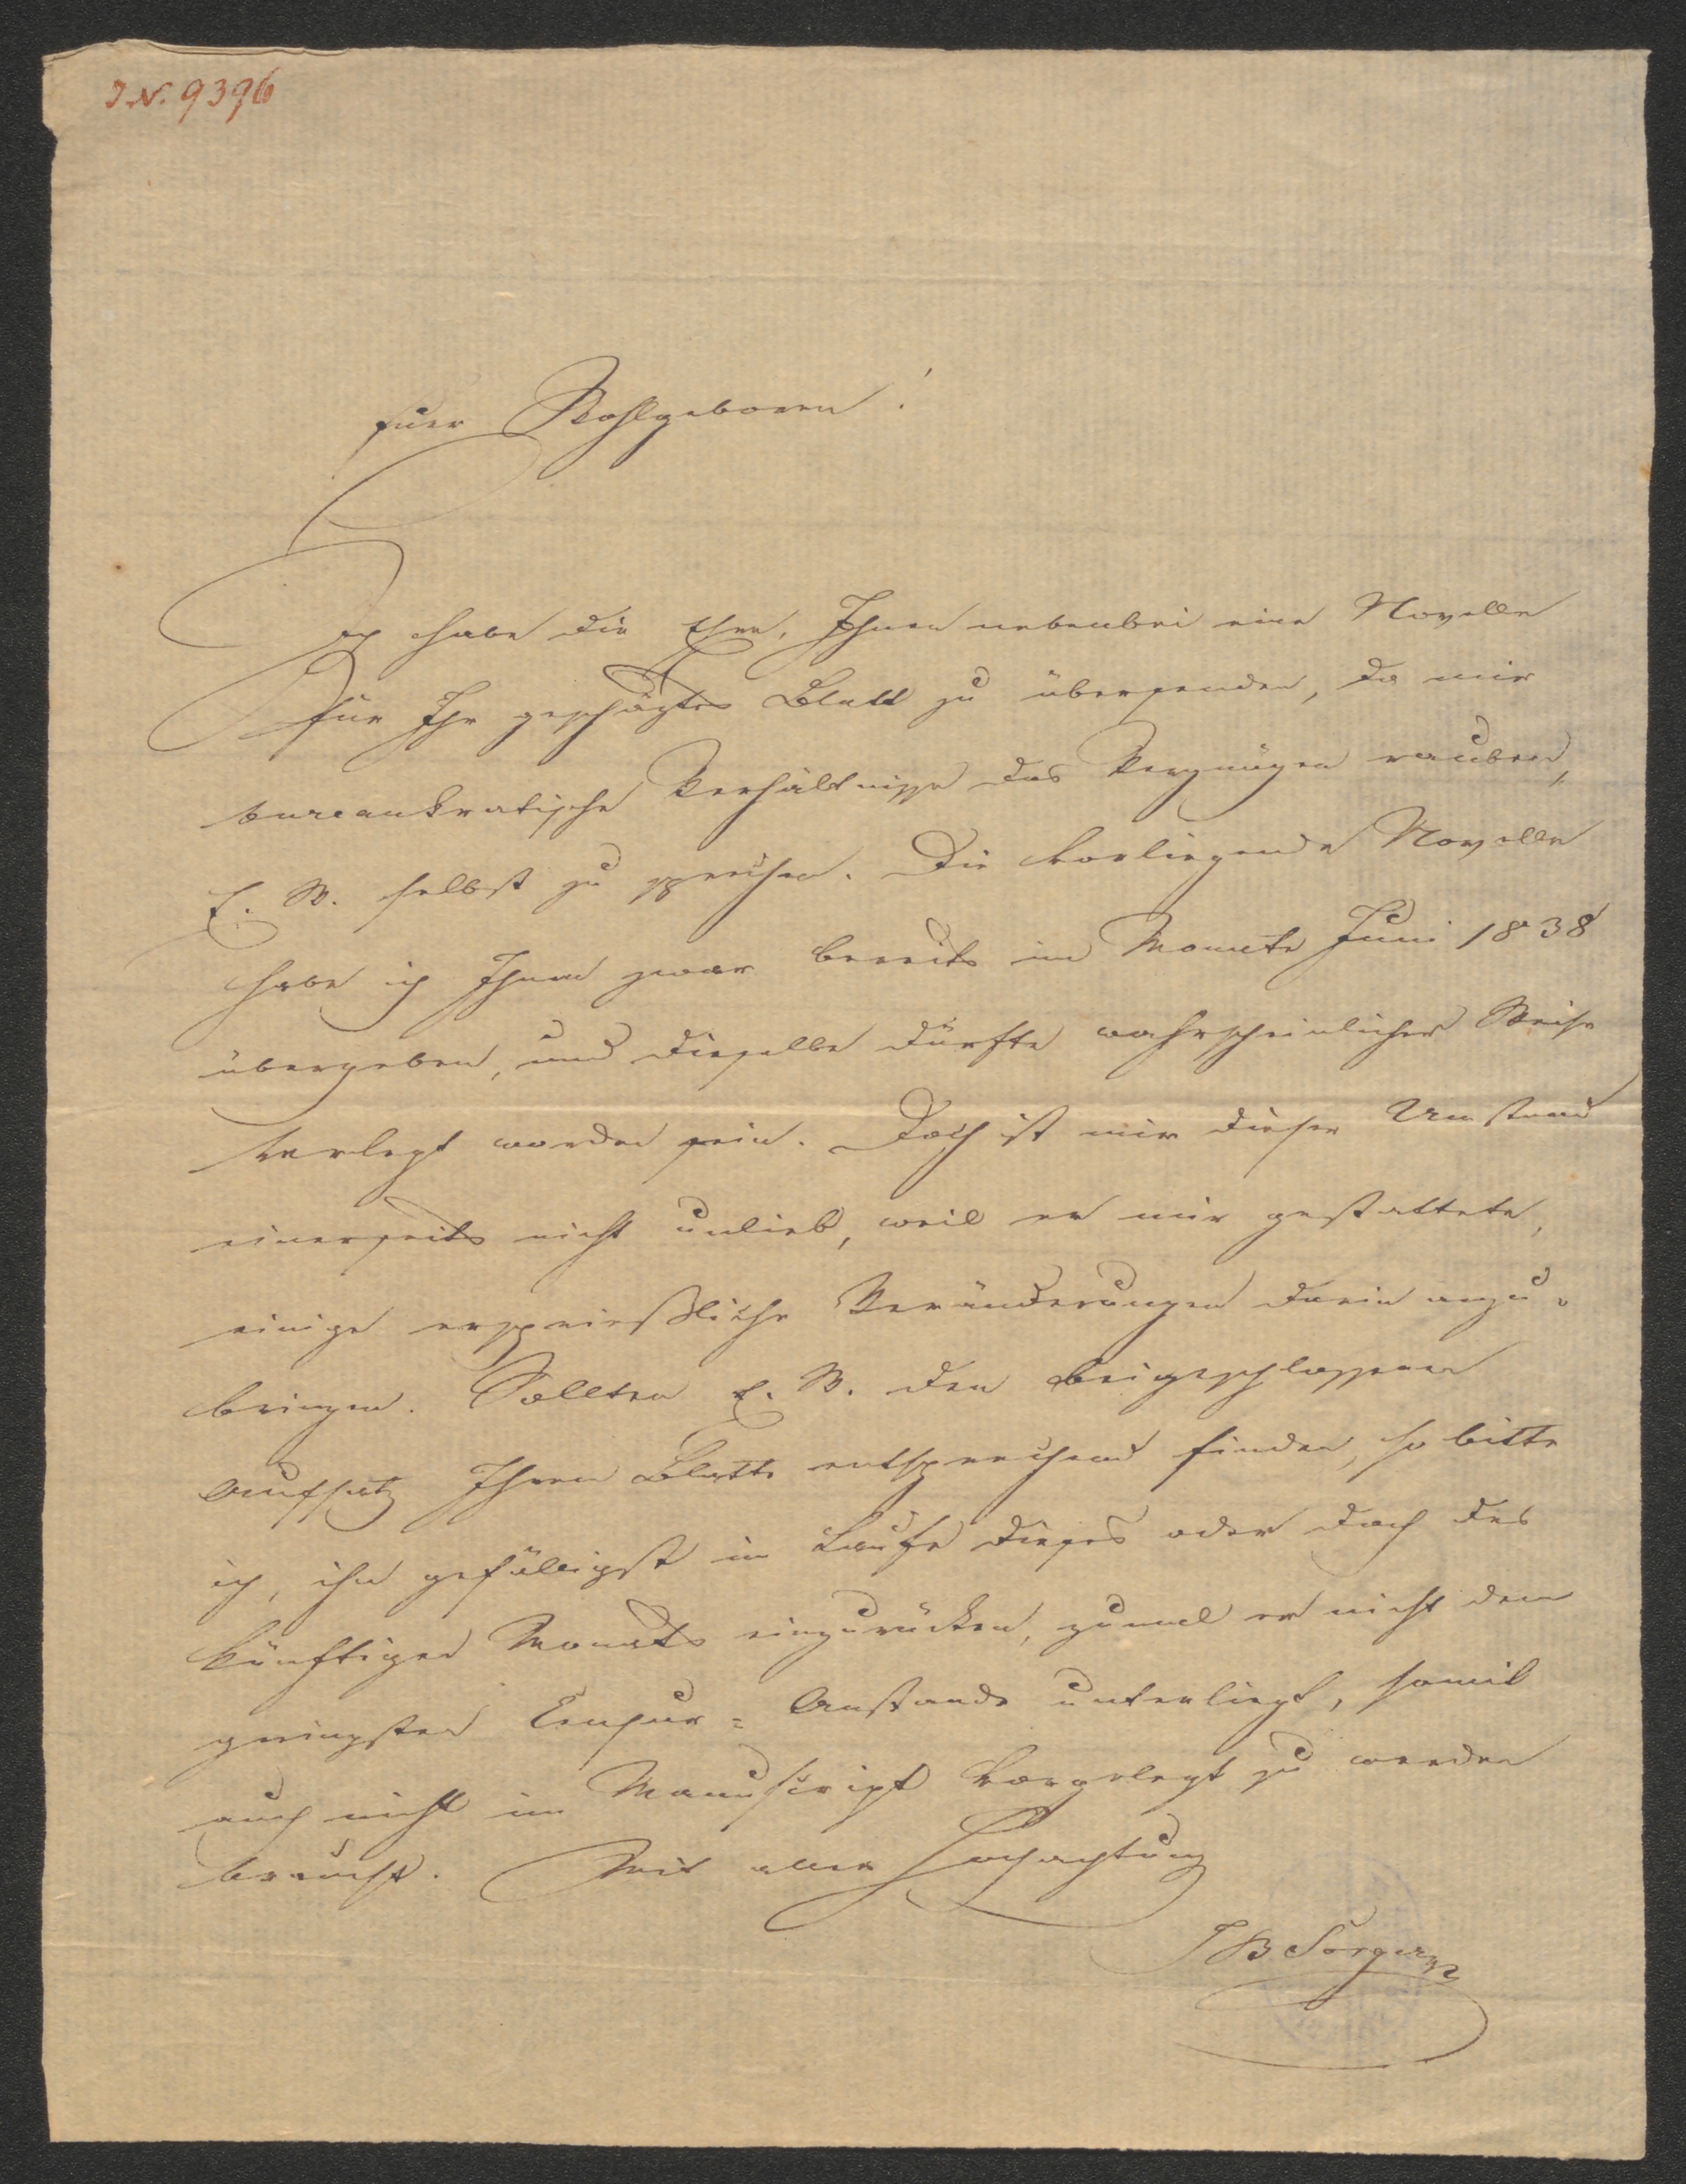 I.N. 9396
Euer Wohlgeboren!
Ich habe die Ehre, Ihnen nebenbei eine Novelle
für Ihr geschätztes Blatt zu übersenden, da mir
bureaukratische Verhältnisse das Vergnügen rauben,
E. W. selbst zu sprechen. Die vorliegende Novelle
habe ich Ihnen zwar bereits im Monate Juni 1838
übergeben, und dieselbe dürfte wahrscheinlicher Weise
verlegt worden sein. Doch ist mir dieser Umstand
einerseits nicht unlieb, weil er mir gestattete,
einige ersprießliche Veränderungen darin anzu-
bringen. Sollten E. W. den beigeschlossenen
Aufsatz Ihrem Blatte entsprechend finden, so bitte
ich, ihn gefälligst im Laufe dieses oder doch des
künftigen Monats einzurücken, zumal er nicht dem
geringsten Censur= Anstande unterliegt, somit
auch nicht im Manuscript vorgelegt zu werden
braucht. Mit aller Hochachtung
J B Sorger